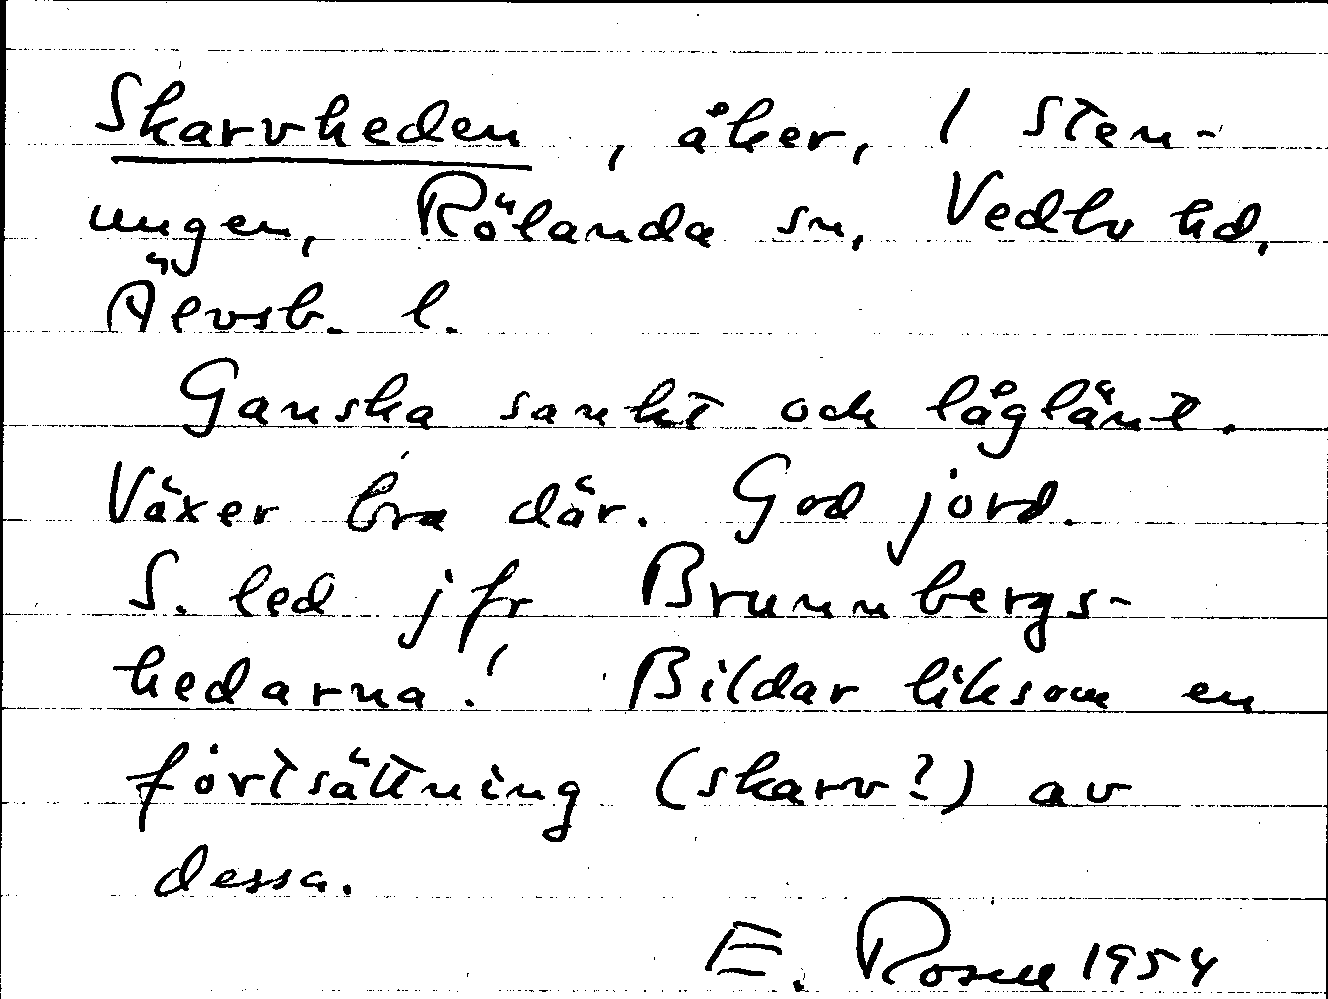 Skarvheden, åker, 1 Sten-
ungen, Rölanda sn, Vedbo hd,
Älvsb. l.
Ganska sankt och låglänt.
Växer bra där. God jord.
S. led jfr Brunnbergs-
hedarna! Bildar liksom en
fortsättning (skarv?) av
dessa.
E. Rosell 1954